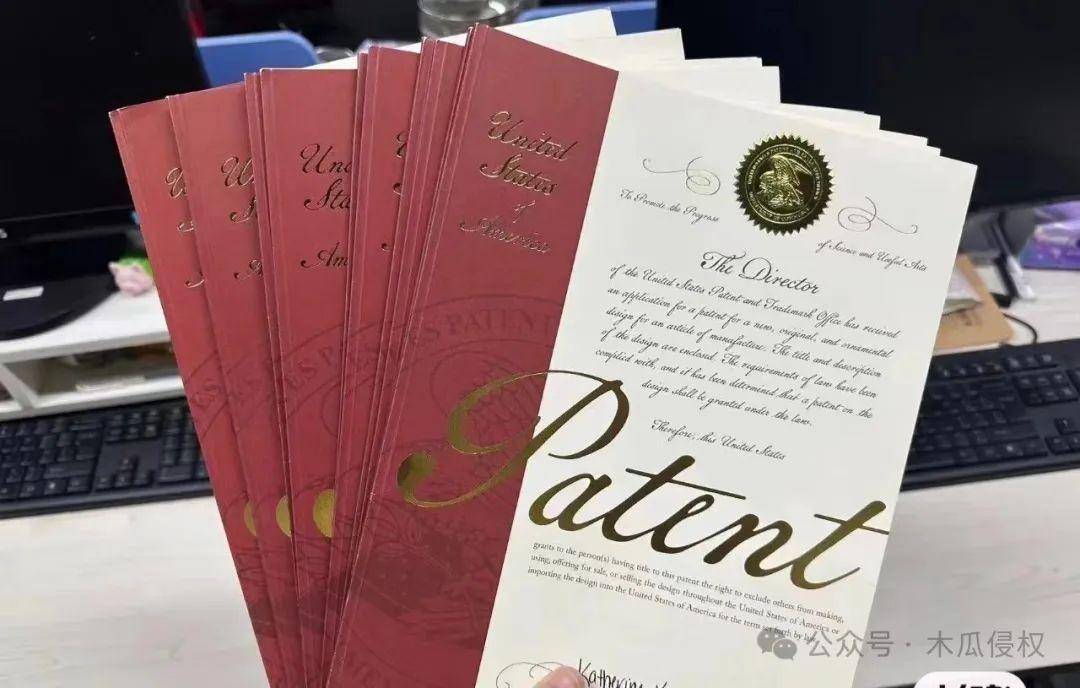 United
States
of
America
To Promote the Progress
of Science and Useful Arts
The Director
of the United States Patent and Trademark Office has received
an application for a patent for a new, original, and ornamental
design for an article of manufacture. The title and description
of the design are enclosed. The requirements of law have been
complied with, and it has been determined that a patent on the
design shall be granted under the law.
Therefore, this United States
Patent
grants to the person(s) having title to this patent the right to exclude others from making,
using, offering for sale, or selling the design throughout the United States of America or
importing the design into the United States of America for the term set forth by law.
Katherine
公众号 · 木瓜侵权